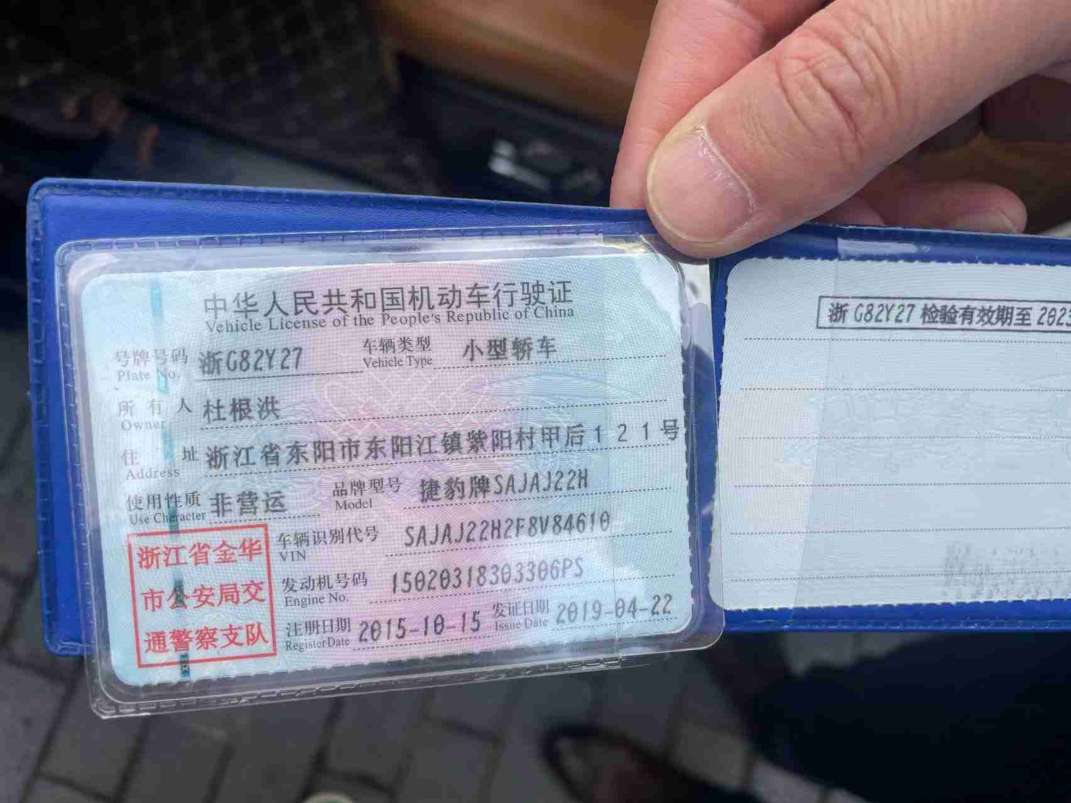 中华人民共和国机动车行驶证
Vehicle License of the People's Republic of China
号牌号码 浙G82Y27 车辆类型 小型轿车
Plate No. Vehicle Type
所有人 杜根洪
Owner
住址 浙江省东阳市东阳江镇紫阳村甲后121号
Address
使用性质 非营运 品牌型号 捷豹牌SAJAJ22H
Use Character Model
浙江省金华
市公安局交
通警察支队
车辆识别代号 SAJAJ22H2F8V84610
VIN
发动机号码 15020318303306PS
Engine No.
注册日期 2015-10-15 发证日期 2019-04-22
Register Date Issue Date
浙G82Y27 检验有效期至 2023